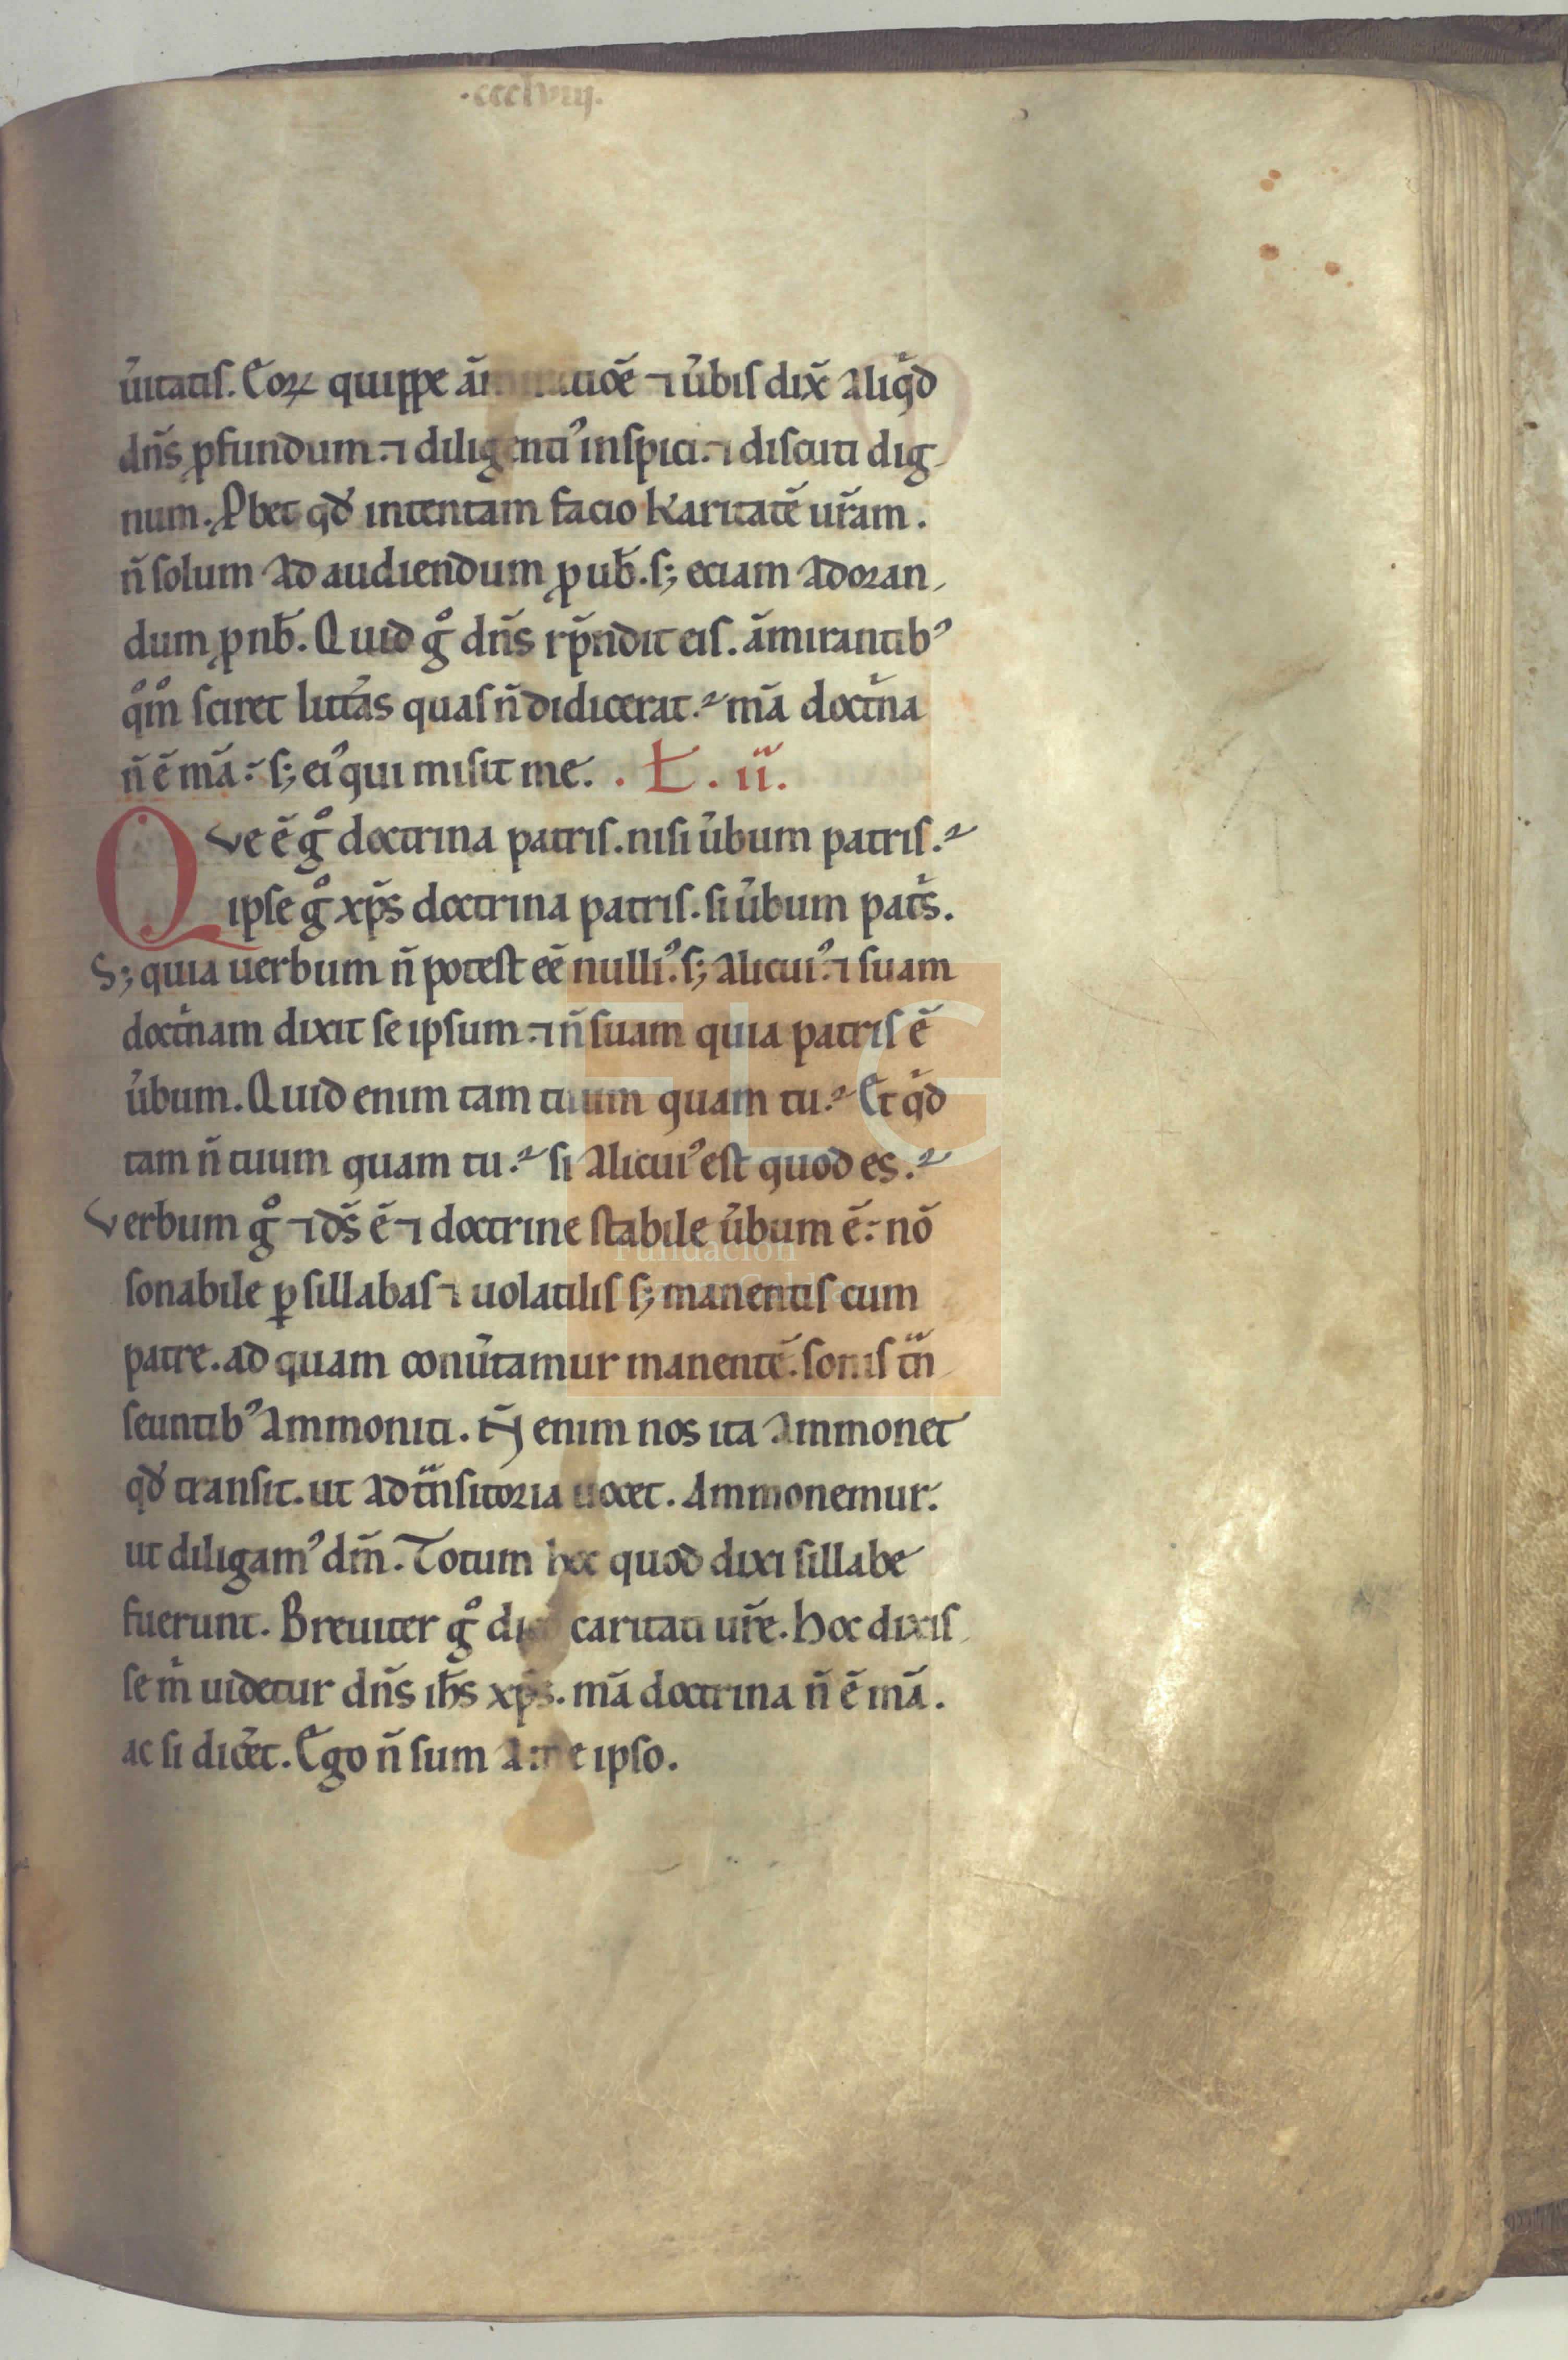 .ccclviiij.
u̾itatis. Coꝝ quippe am̄iratioē ⁊ u̾bis dix̄ aliqͥd
dn̄s ꝓfundum. ⁊ diligenti᾽ inspici. ⁊ discuti dig
num. P̱bet qd̄ intentam facio karitatē ur̄am.
n̄ solum ad audiendum ꝓ ub̄. s; eciam ad oran
dum ꝓ nb̄. Quid gͦ dn̄s rp̄ndit eis. am̄irantib᾽
qͦmͦ sciret litt̾as quas n̄ didicerat. mā doctͥna
n̄ ē mā : s; ei᾽ qui misit me. . L̵ . ii.
Que ē gͦ doctrina patris. nisi u̾bum patris.
ipse gͦ xp̄s doctrina patris. si u̾bum patͥs.
S; quia uerbum n̄ potest eē nulli᾽. s; alicui᾽. ⁊ suam
doctͥnam dixit se ipsum. ⁊ n̄ suam quia patris ē
u̾bum. Quid enim tam tuum quam tu. Et qͥd
tam n̄ tuum quam tu. si alicui᾽ est quod es.
Verbum gͦ ⁊ ds̄ ē ⁊ doctrine stabile u̾bum ē : nō
sonabile ꝑ sillabas ⁊ uolatilis s; manentis cum
patre. ad quam conu̾tamur manentē. sonis tͣn
seuntib᾽ ammoniti. enim nos ita ammonet
qd̄ transit. ut ad tͣnsitoria uocet. Ammonemur.
ut diligam᾽ dm̄. Totum hoc quod dixi sillabe
fuerunt. Breuiter gͦ caritati ur̄e. hoc dixis
se mͥ uidetur dn̄s ih̄s xp̄s. mā doctrina n̄ ē mā.
ac si dic̾et. Ego n̄ sum a me ipso.
FLG
Fundación